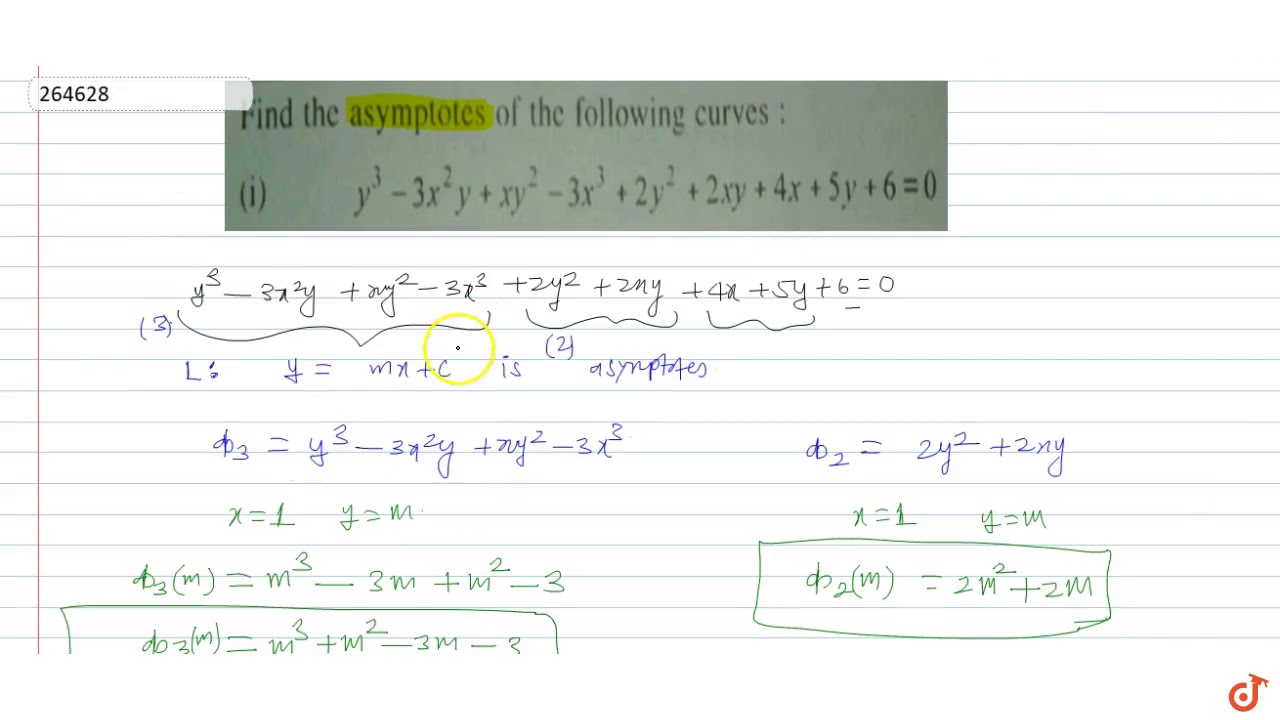 264628
Find the asymptotes of the following curves :
(i) y³ - 3x²y + xy² - 3x³ + 2y² + 2xy + 4x + 5y + 6 = 0
y³ - 3x²y + xy² - 3x³ + 2y² + 2xy + 4x + 5y + 6 = 0
(3) (2)
L: y = mx + c is asymptotes
ϕ₃ = y³ - 3x²y + xy² - 3x³ ϕ₂ = 2y² + 2xy
x = 1 y = m x = 1 y = m
ϕ₃(m) = m³ - 3m + m² - 3 ϕ₂(m) = 2m² + 2m
ϕ₃(m) = m³ + m² - 3m - 3